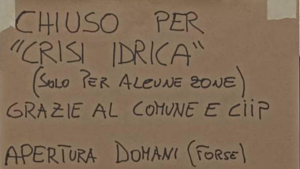 CHIUSO PER
"CRISI IDRICA"
(SOLO PER ALCUNE ZONE)
GRAZIE AL COMUNE E CIIP
APERTURA DOMANI (FORSE)